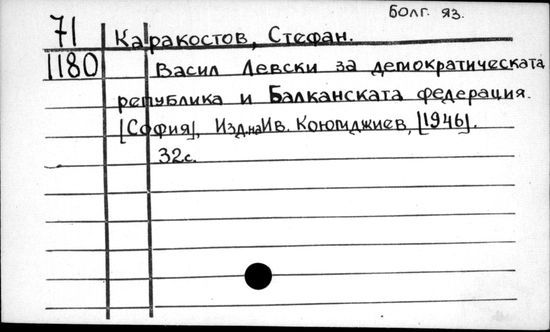 Болг. яз.
71
1180
Каракостов, Стефан.
Васил Левски за демократическата
република и Балканската федерация.
[София], Изд.наИв. Коюмджиев, [1946].
32с.